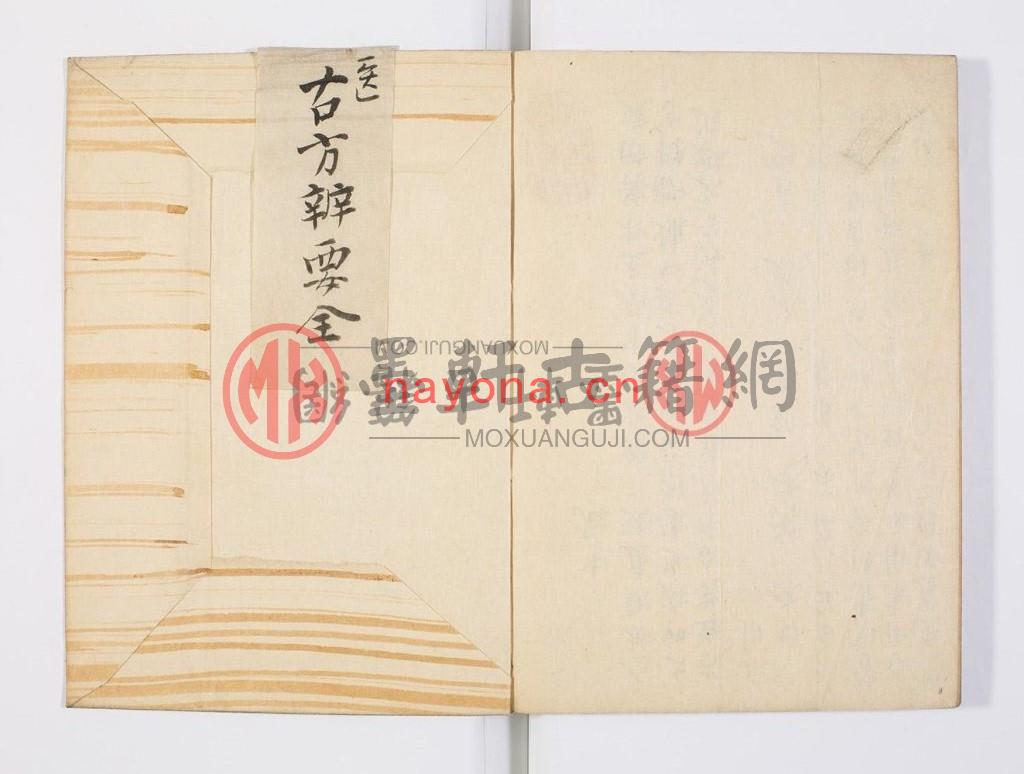 医
古方辨要全
MOXUANGUJI.COM
墨軒古籍網
nayona.cn
MOXUANGUJI.COM